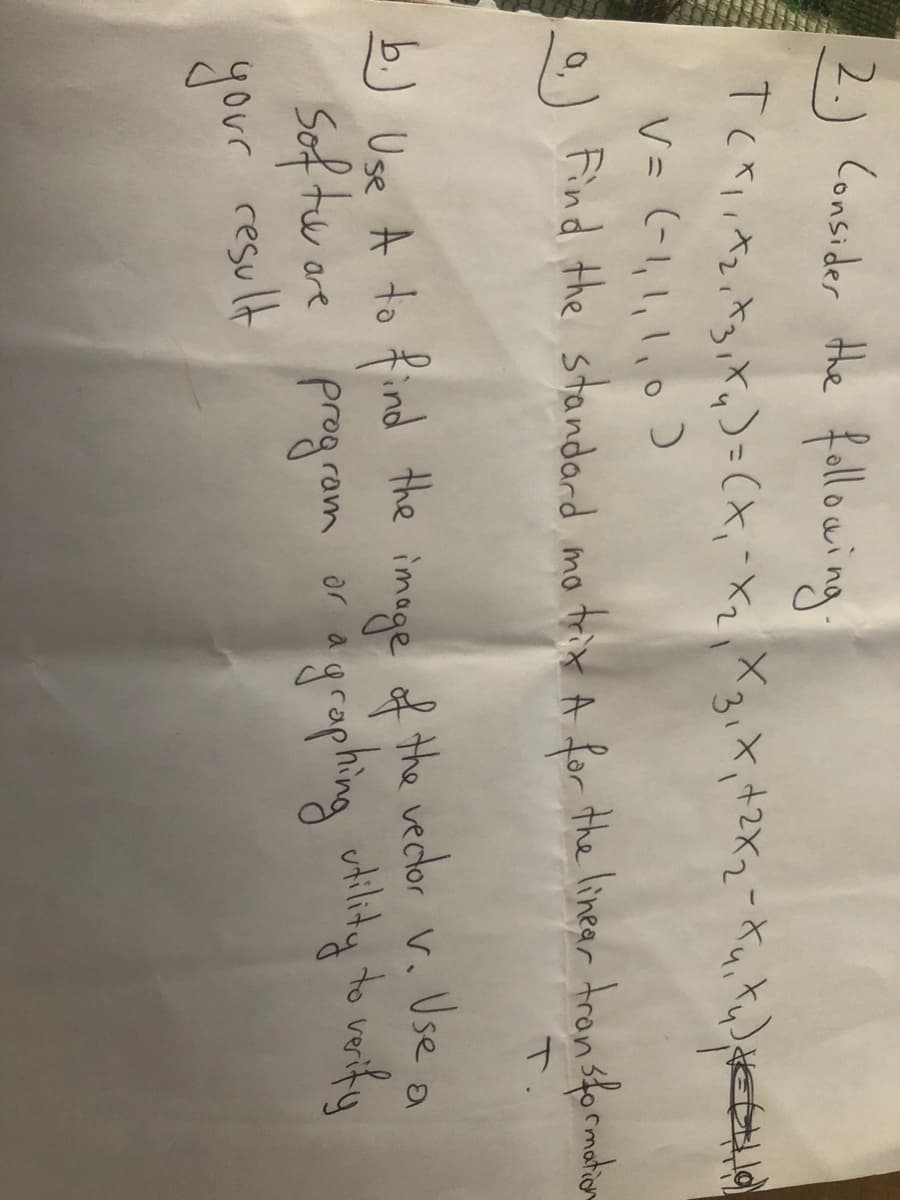 2.) Consider the following.
T(x₁,x₂,x₃,x₄)=(x₁-x₂, x₃,x₁+2x₂-x₄,x₄),
V=(-1,1,1,0)
a.) Find the standard matrix A for the linear transformation
T.
b.) Use A to find the image of the vector v. Use a
software program or a graphing utility to verify
your result